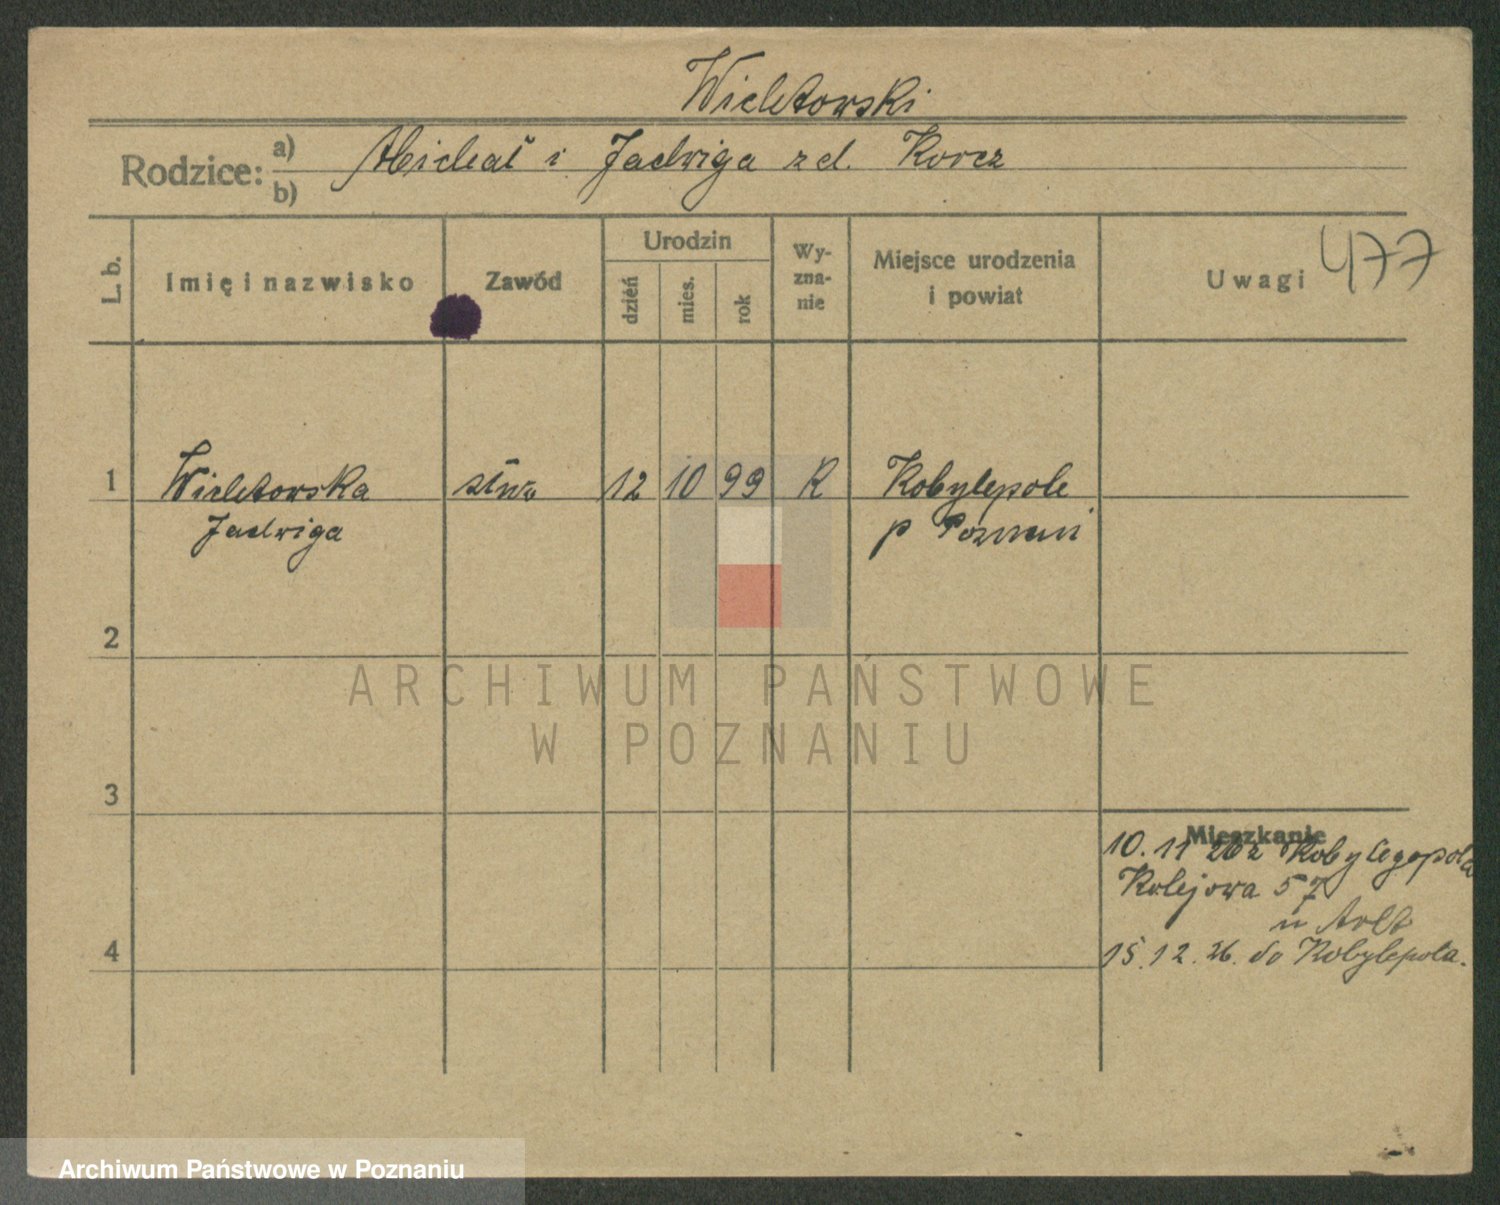 Wieletowski
Rodzice: a) Michał i Jadwiga zd. Korcz
b)
L. b. Imię i nazwisko Zawód Urodzin dzień mies. rok Wyzna- nie Miejsce urodzenia i powiat Uwagi 477
1 Wieletowska służ 12 10 99 R Kobylepole
Jadwiga p Poznań
2
ARCHIWUM PAŃSTWOWE
W POZNANIU
3
Mieszkanie
10.11 26 z Kobylegopola
Kolejowa 57
u
4 15.12.26. do Kobylepola.
Archiwum Państwowe w Poznaniu